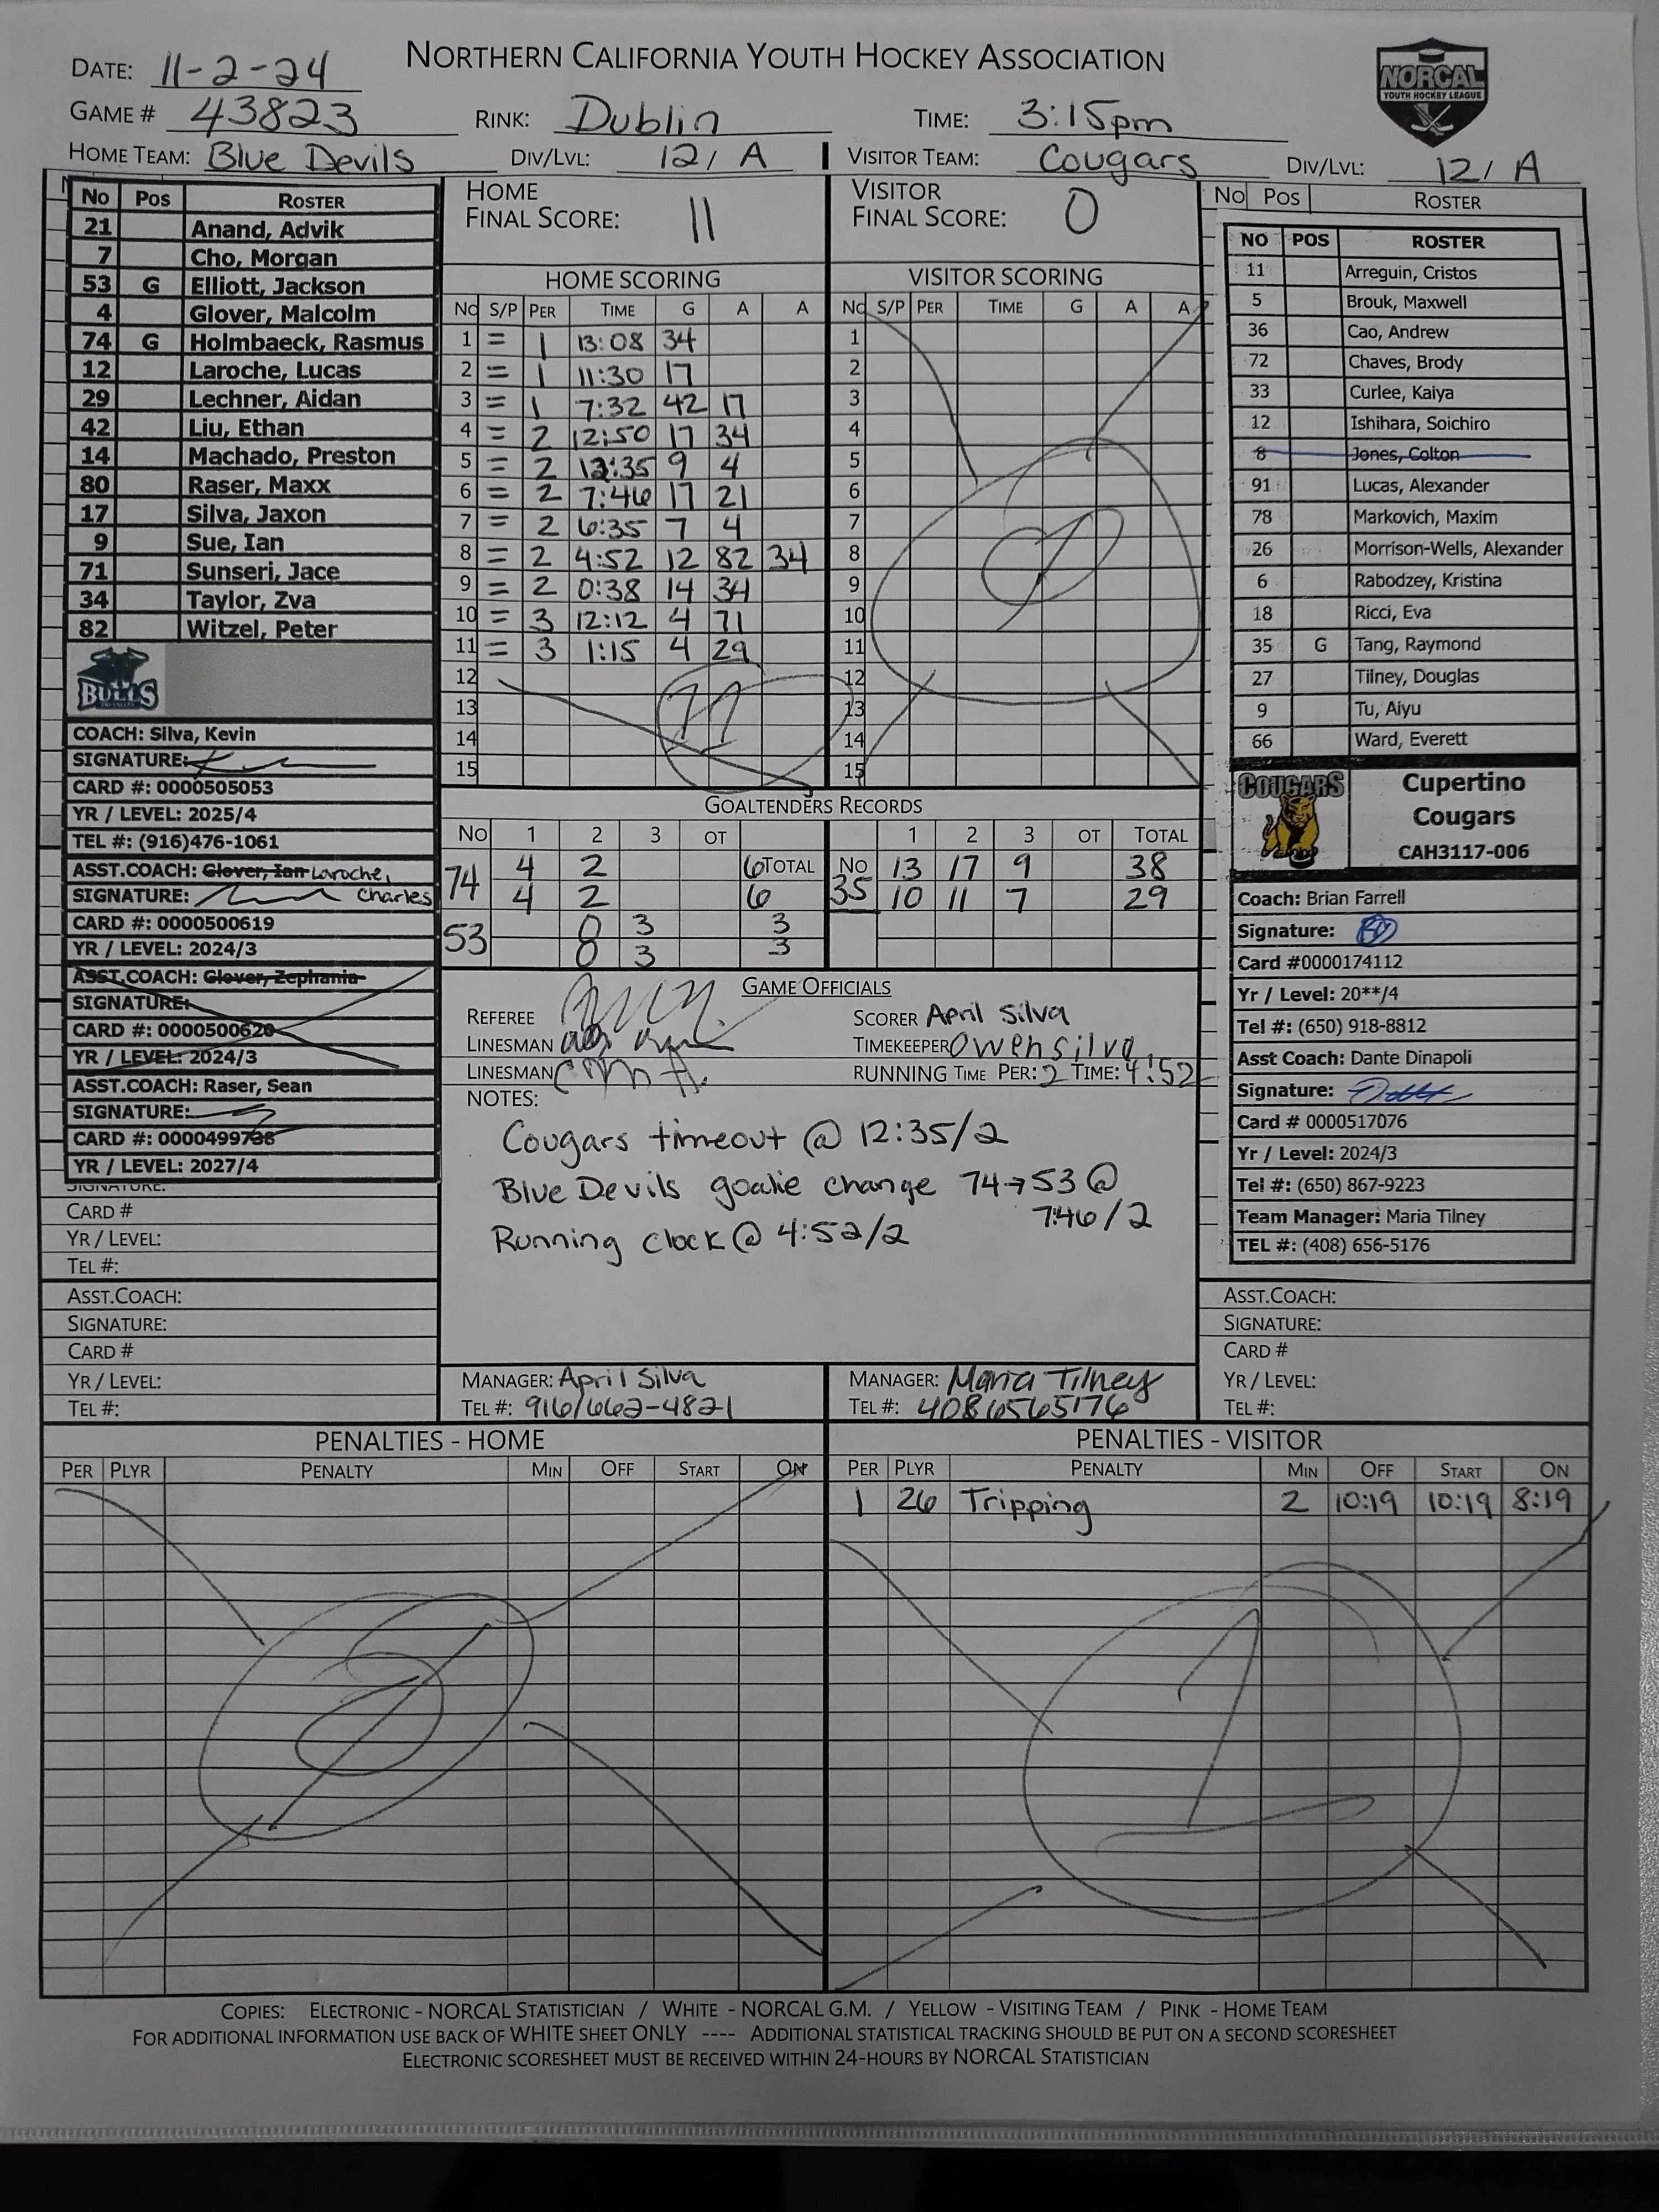 NORTHERN CALIFORNIA YOUTH HOCKEY ASSOCIATION
NORCAL
YOUTH HOCKEY LEAGUE
DATE: 11-2-24
GAME # 43823 RINK: Dublin TIME: 3:15pm
HOME TEAM: Blue Devils DIV/LVL: 12/ A VISITOR TEAM: Cougars DIV/LVL: 12/ A
No Pos ROSTER
21 Anand, Advik
7 Cho, Morgan
53 G Elliott, Jackson
4 Glover, Malcolm
74 G Holmbaeck, Rasmus
12 Laroche, Lucas
29 Lechner, Aidan
42 Liu, Ethan
14 Machado, Preston
80 Raser, Maxx
17 Silva, Jaxon
9 Sue, Ian
71 Sunseri, Jace
34 Taylor, Zva
82 Witzel, Peter
BULLS
COACH: Silva, Kevin
SIGNATURE:
CARD #: 0000505053
YR / LEVEL: 2025/4
TEL #: (916)476-1061
ASST.COACH: Glover, Ian Laroche,
SIGNATURE: Charles
CARD #: 0000500619
YR / LEVEL: 2024/3
ASST.COACH: Glover, Zephania
SIGNATURE:
CARD #: 0000500620
YR / LEVEL: 2024/3
ASST.COACH: Raser, Sean
SIGNATURE:
CARD #: 0000499738
YR / LEVEL: 2027/4
SIGNATURE:
CARD #
YR / LEVEL:
TEL #:
ASST.COACH:
SIGNATURE:
CARD #
YR / LEVEL:
TEL #:
HOME
FINAL SCORE: 11
VISITOR
FINAL SCORE: 0
HOME SCORING
No S/P PER TIME G A A
1 = 1 13:08 34
2 = 1 11:30 17
3 = 1 7:32 42 17
4 = 2 12:50 17 34
5 = 2 12:35 9 4
6 = 2 7:46 17 21
7 = 2 6:35 7 4
8 = 2 4:52 12 82 34
9 = 2 0:38 14 34
10 = 3 12:12 4 71
11 = 3 1:15 4 29
12
13
14
15
11
VISITOR SCORING
No S/P PER TIME G A A
1
2
3
4
5
6
7
8
9
10
11
12
13
14
15
0
GOALTENDERS RECORDS
No 1 2 3 OT 1 2 3 OT TOTAL
74 4 2 6 TOTAL No 13 17 9 38
4 2 6 35 10 11 7 29
53 0 3 3
0 3 3
GAME OFFICIALS
REFEREE SCORER April Silva
LINESMAN TIMEKEEPER Owen Silva
LINESMAN RUNNING TIME PER: 2 TIME: 4:52
NOTES:
Cougars timeout @ 12:35/2
Blue Devils goalie change 74→53 @
7:46/2
Running clock @ 4:52/2
MANAGER: April Silva MANAGER: Maria Tilney
TEL #: 916/662-4821 TEL #: 4086565176
No Pos ROSTER
NO POS ROSTER
11 Arreguin, Cristos
5 Brouk, Maxwell
36 Cao, Andrew
72 Chaves, Brody
33 Curlee, Kaiya
12 Ishihara, Soichiro
8 Jones, Colton
91 Lucas, Alexander
78 Markovich, Maxim
26 Morrison-Wells, Alexander
6 Rabodzey, Kristina
18 Ricci, Eva
35 G Tang, Raymond
27 Tilney, Douglas
9 Tu, Aiyu
66 Ward, Everett
COUGARS
Cupertino
Cougars
CAH3117-006
Coach: Brian Farrell
Signature:
Card #0000174112
Yr / Level: 20**/4
Tel #: (650) 918-8812
Asst Coach: Dante Dinapoli
Signature:
Card # 0000517076
Yr / Level: 2024/3
Tel #: (650) 867-9223
Team Manager: Maria Tilney
TEL #: (408) 656-5176
ASST.COACH:
SIGNATURE:
CARD #
YR / LEVEL:
TEL #:
PENALTIES - HOME
PER PLYR PENALTY MIN OFF START ON
0
PENALTIES - VISITOR
PER PLYR PENALTY MIN OFF START ON
1 26 Tripping 2 10:19 10:19 8:19
1
COPIES: ELECTRONIC - NORCAL STATISTICIAN / WHITE - NORCAL G.M. / YELLOW - VISITING TEAM / PINK - HOME TEAM
FOR ADDITIONAL INFORMATION USE BACK OF WHITE SHEET ONLY ---- ADDITIONAL STATISTICAL TRACKING SHOULD BE PUT ON A SECOND SCORESHEET
ELECTRONIC SCORESHEET MUST BE RECEIVED WITHIN 24-HOURS BY NORCAL STATISTICIAN